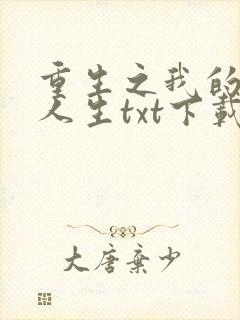 重生之我的
人生txt下载
大唐弃少